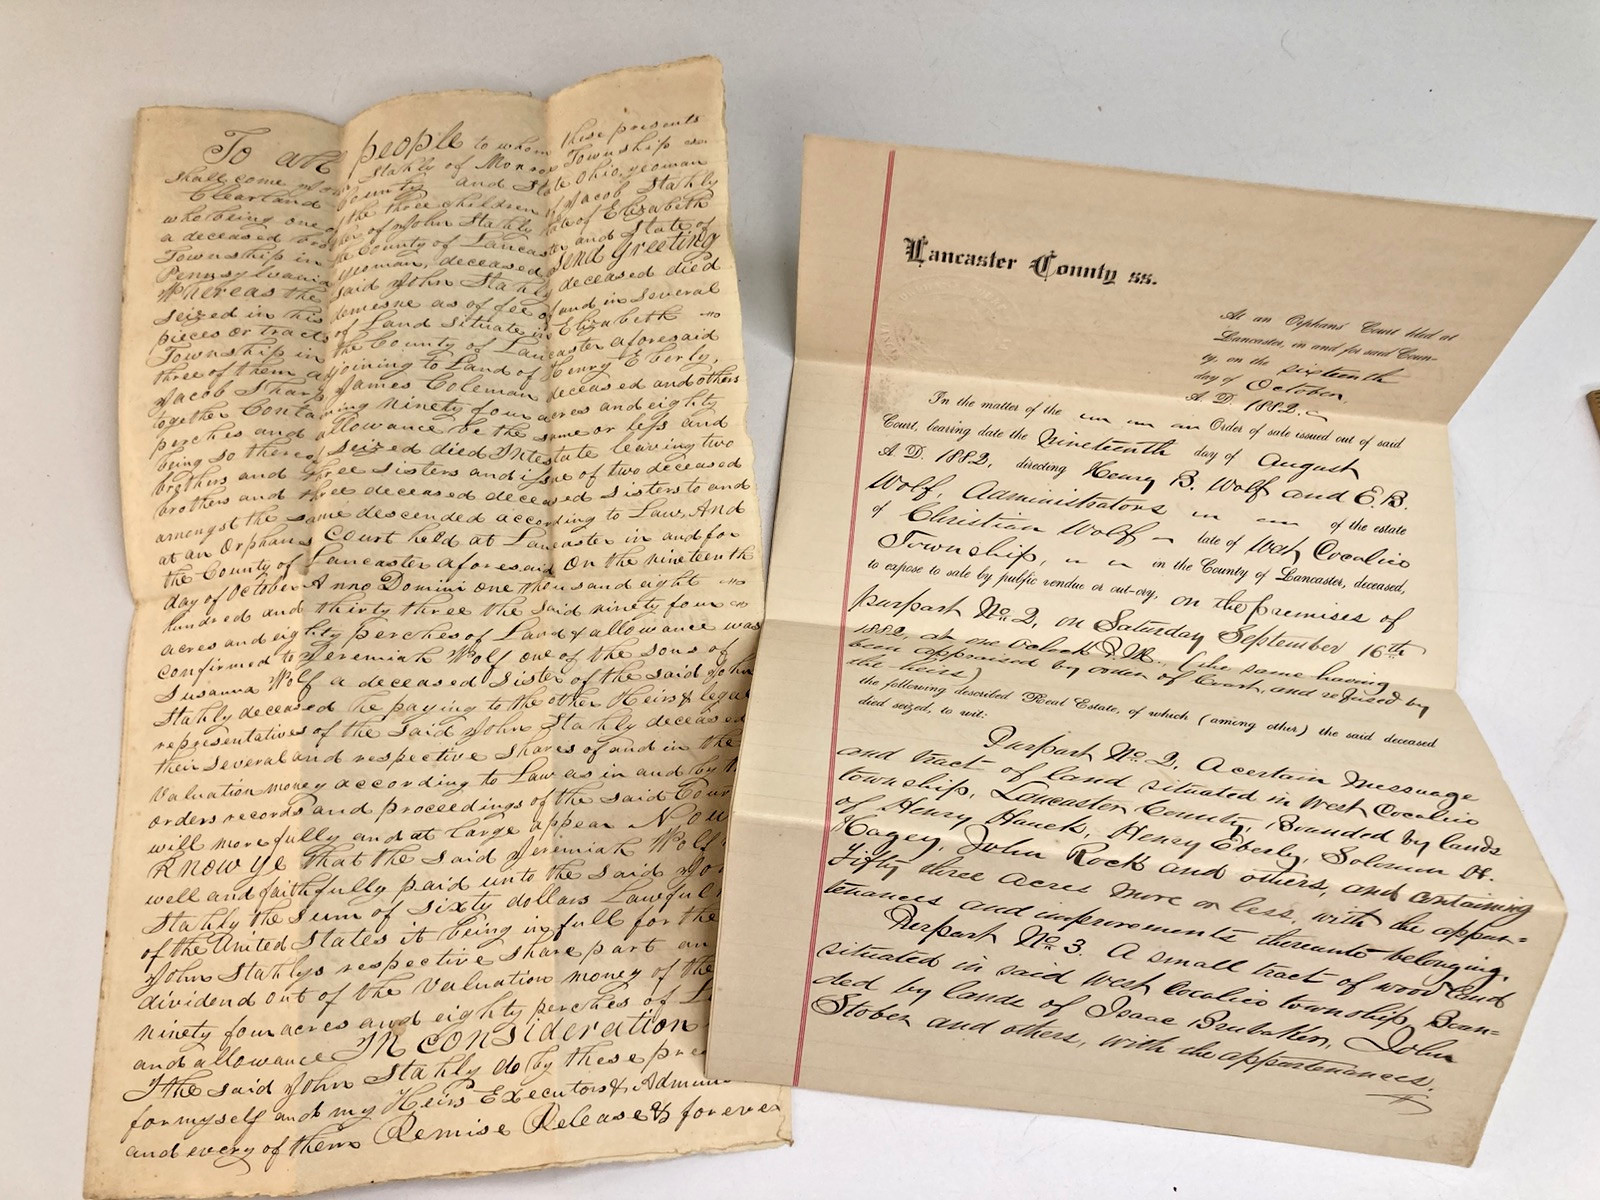 To all people to whom these presents
shall come John Stahly of Monroe Township in
Clearland County and State Ohio, yeoman
who being one of the three children of Jacob Stahly
a deceased brother of John Stahly late of Elizabeth
Township in the County of Lancaster and State of
Pennsylvania yeoman, deceased, Send Greeting
Whereas the said John Stahly deceased died
seized in his demesne as of fee of and in several
pieces or tracts of Land situate in Elizabeth
Township in the County of Lancaster aforesaid
three of them adjoining to Land of Henry Eberly,
Jacob Sharp James Coleman deceased and others
together Containing ninety four acres and eighty
perches and allowance be the same or less and
being so thereof seized died Intestate leaving two
brothers and three sisters and issue of two deceased
brothers and three deceased deceased sisters to and
amongst the same descended according to Law, And
at an Orphans Court held at Lancaster in and for
the County of Lancaster aforesaid On the nineteenth
day of October Anno Domini one thousand eight
hundred and thirty three the said ninety four
acres and eighty perches of Land & allowance was
confirmed to Jeremiah Wolf one of the sons of
Susanna Wolf a deceased sister of the said John
Stahly deceased he paying to the other Heirs & legal
representatives of the said John Stahly deceased
their several and respective shares of and in the
valuation money according to Law as in and by the
orders records and proceedings of the said Cour
will more fully and at large appear Now
Know ye that the said Jeremiah Wolf
well and faithfully paid unto the said Jo
Stahly the sum of sixty dollars Lawful
of the United States it being in full for the
John Stahlys respective share part an
dividend out of the valuation money of the
ninety four acres and eighty perches of L
and allowance In Consideration
I the said John Stahly do by these pres
for myself and my Heirs Executors & Admin
and every of them Remise Release & forever
Lancaster County ss.
At an Orphans' Court held at
Lancaster, in and for said Coun-
ty, on the sixteenth
day of October,
A. D. 1882.
In the matter of the an Order of sale issued out of said
Court, bearing date the nineteenth day of August
A. D. 1882, directing Henry B. Wolf and E. B.
Wolf, Administrators of the estate
of Christian Wolf late of West Cocalico
Township, in the County of Lancaster, deceased,
to expose to sale by public vendue or out-cry, on the premises of
purpart No. 2, on Saturday September 16th
1882, at one o'clock P. M., (the same having
been appraised by order of Court, and refused by
the heirs)
the following described Real Estate, of which (among other) the said deceased
died seized, to wit:
Purpart No. 2. A certain messuage
and tract of land situated in West Cocalico
township, Lancaster County, Bounded by lands
of Henry Hauck, Henry Eberly, Solomon H.
Hagey, John Rock and others, and containing
Fifty three acres more or less, with the appur=
tenances and improvements thereunto belonging.
Purpart No. 3. A small tract of wood land
situated in said West Cocalico township, Boun=
ded by lands of Isaac Brubaker, John
Stober and others, with the appurtenances.